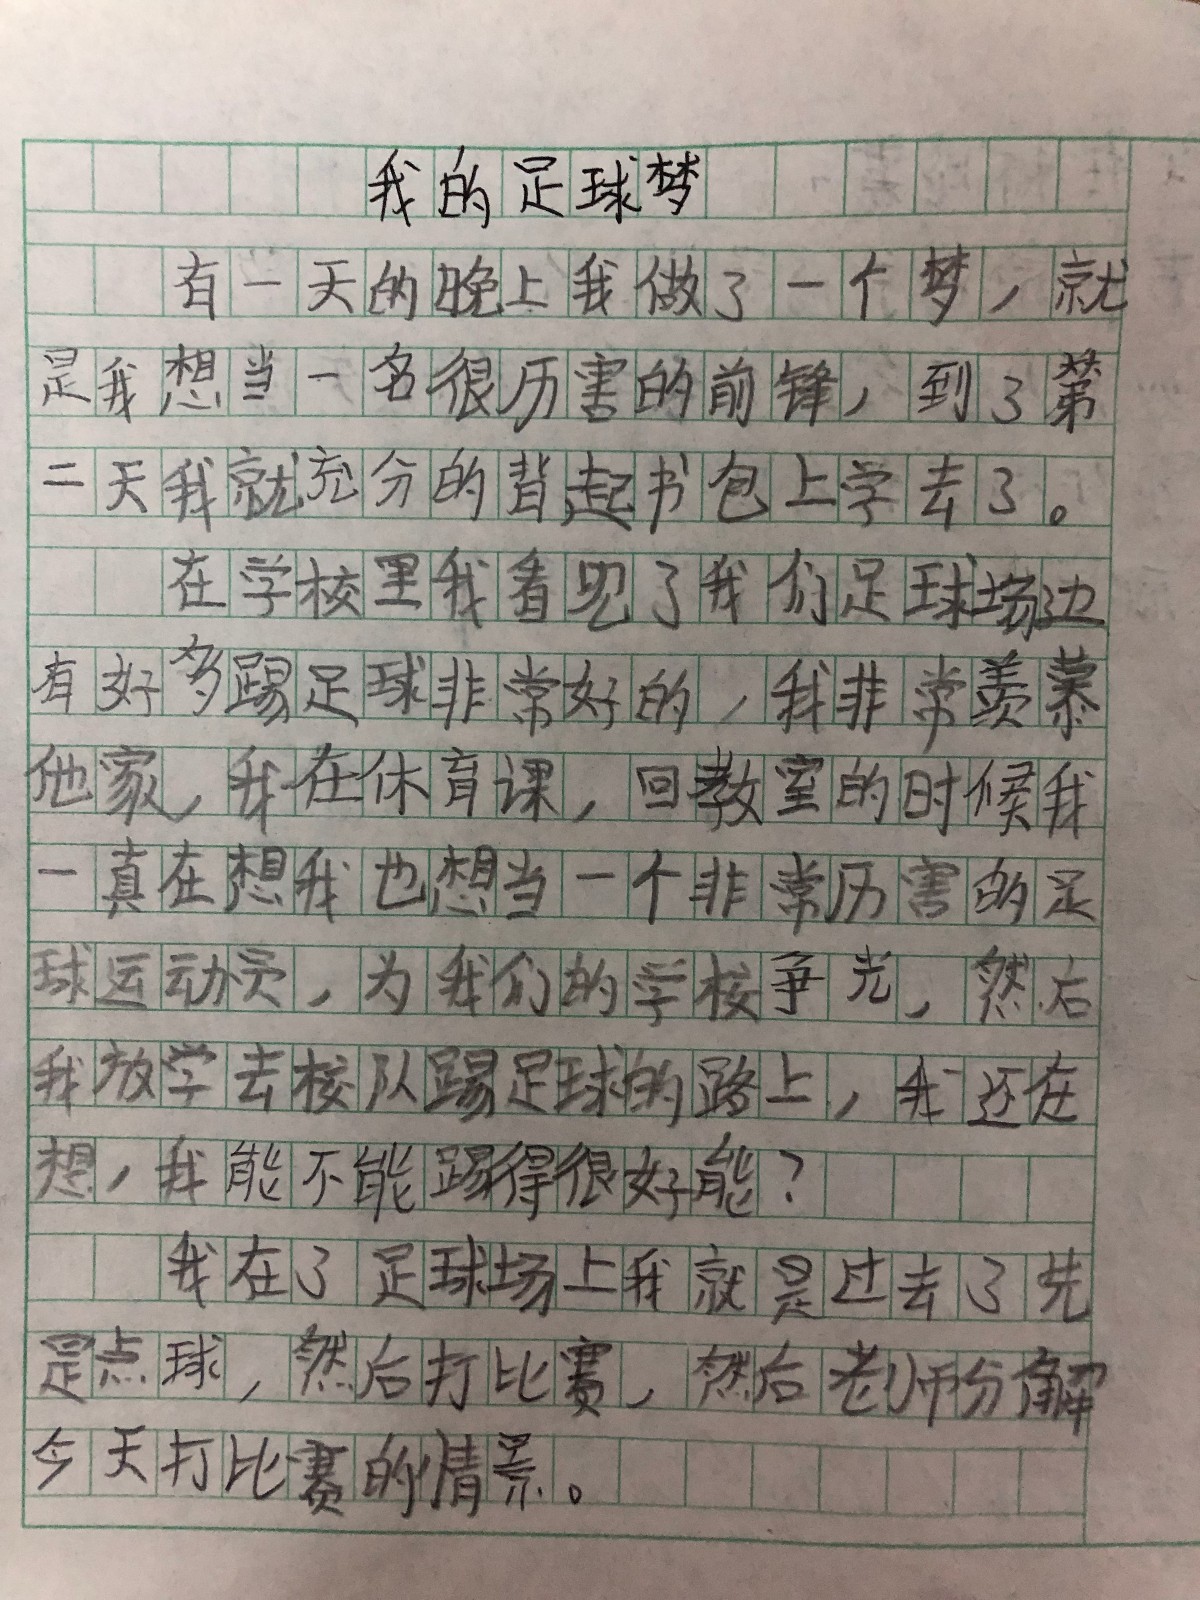 我的足球梦
有一天的晚上我做了一个梦，就
是我想当一名很历害的前锋，到了第
二天我就充分的背起书包上学去了。
在学校里我看见了我们足球场边
有好多踢足球非常好的，我非常羡慕
他家，我在休育课，回教室的时候我
一真在想我也想当一个非常历害的足
球运动员，为我们的学校争光，然后
我放学去校队踢足球的路上，我还在
想，我能不能踢得很好能？
我在了足球场上我就是过去了先
是点球，然后打比赛，然后老师分解
今天打比赛的情景。